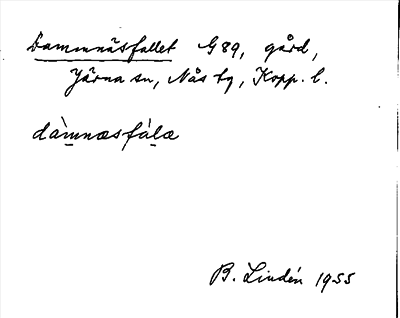 Dammnäsfallet G 89, gård,
Järna sn, Nås tg, Kopp. l.
dàm̲næsfál̲æ
B. Lindén 1955